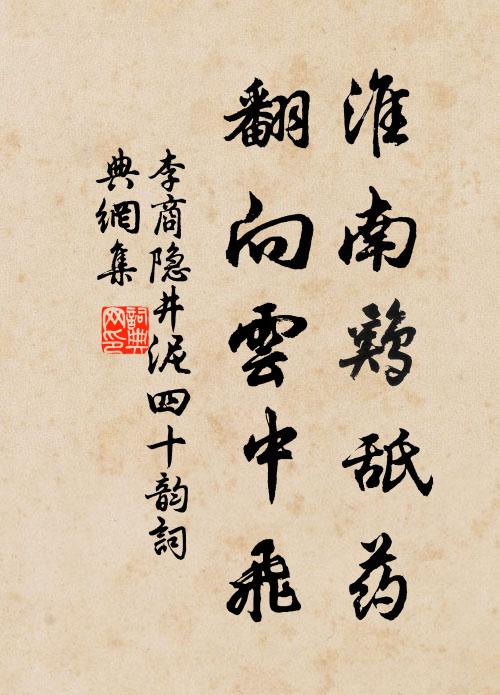 淮南鷄舐药
翻向雲中飛
李商隐井泥四十韵詞
典網集
詞典
网印